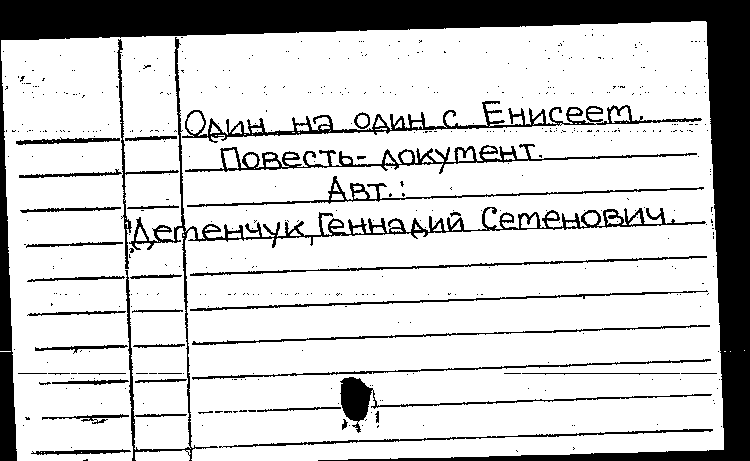 Один на один с Енисеем.
Повесть-документ.
Авт.:
Деменчук, Геннадий Семенович.